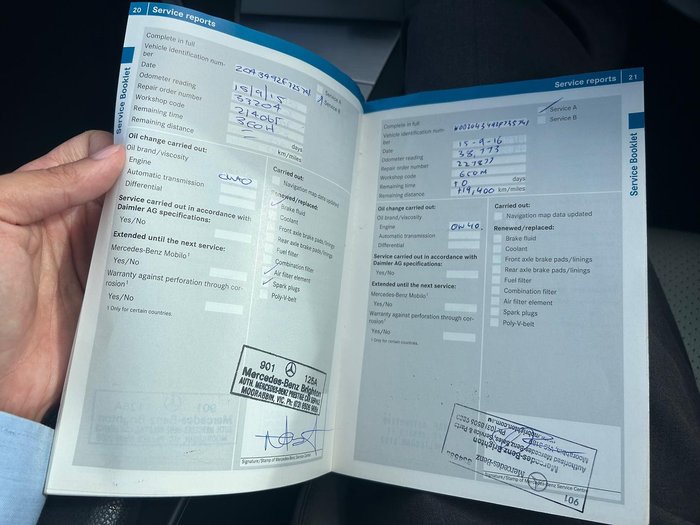 20 Service reports
Service Booklet
Complete in full
Service A
Vehicle identification num-
ber
Service B
Date 15/9/15
Odometer reading 33204
Repair order number 214065
Workshop code
Remaining time days
Remaining distance km/miles
Oil change carried out:
Oil brand/viscosity
Engine
Automatic transmission
Differential
Service carried out in accordance with
Daimler AG specifications:
Yes/No
Extended until the next service:
Mercedes-Benz Mobilo¹
Yes/No
Warranty against perforation through cor-
rosion¹
Yes/No
¹ Only for certain countries.
Carried out:
Navigation map data updated
Renewed/replaced:
Brake fluid
Coolant
Front axle brake pads/linings
Rear axle brake pads/linings
Fuel filter
Combination filter
Air filter element
Spark plugs
Poly-V-belt
901 1264
Mercedes-Benz Brighton
AUTH. MERCEDES-BENZ
MOORABBIN, VIC.
Signature/Stamp of Mercedes-Benz Service Centre
Service reports 21
Service Booklet
Complete in full
Service A
Vehicle identification num-
ber
Service B
Date 15-9-16
Odometer reading 38,773
Repair order number 227877
Workshop code
Remaining time +0 days
Remaining distance +19,400 km/miles
Oil change carried out:
Oil brand/viscosity
Engine 0W40
Automatic transmission
Differential
Service carried out in accordance with
Daimler AG specifications:
Yes/No
Extended until the next service:
Mercedes-Benz Mobilo¹
Yes/No
Warranty against perforation through cor-
rosion¹
Yes/No
¹ Only for certain countries.
Carried out:
Navigation map data updated
Renewed/replaced:
Brake fluid
Coolant
Front axle brake pads/linings
Rear axle brake pads/linings
Fuel filter
Combination filter
Air filter element
Spark plugs
Poly-V-belt
901
Mercedes-Benz Brighton
Authorised Mercedes-Benz Sales, Service & Parts
Signature/Stamp of Mercedes-Benz Service Centre